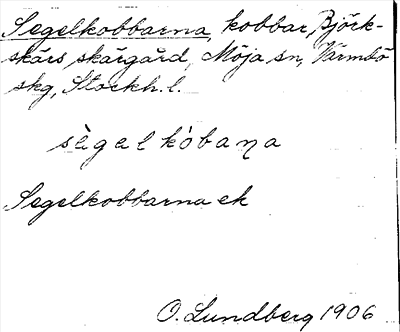 Segelkobbarna, kobbar, Björk-
skärs skärgård, Möja sn, Värmdö
skg, Stockh. l.
sègelkòbaṇa
Segelkobbarna ek
O. Lundberg 1906